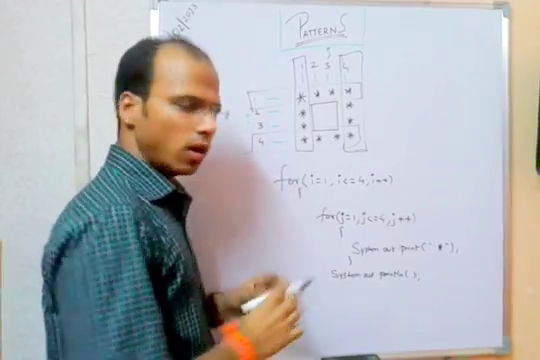 02/2023
PATTERNS
j
1 2 3 4
1 * * * *
2 * *
3 * *
4 * * * *
for(i=1, i<=4, i++)
{
for(j=1, j<=4, j++)
{
System.out.print(" * ");
}
System.out.println( );